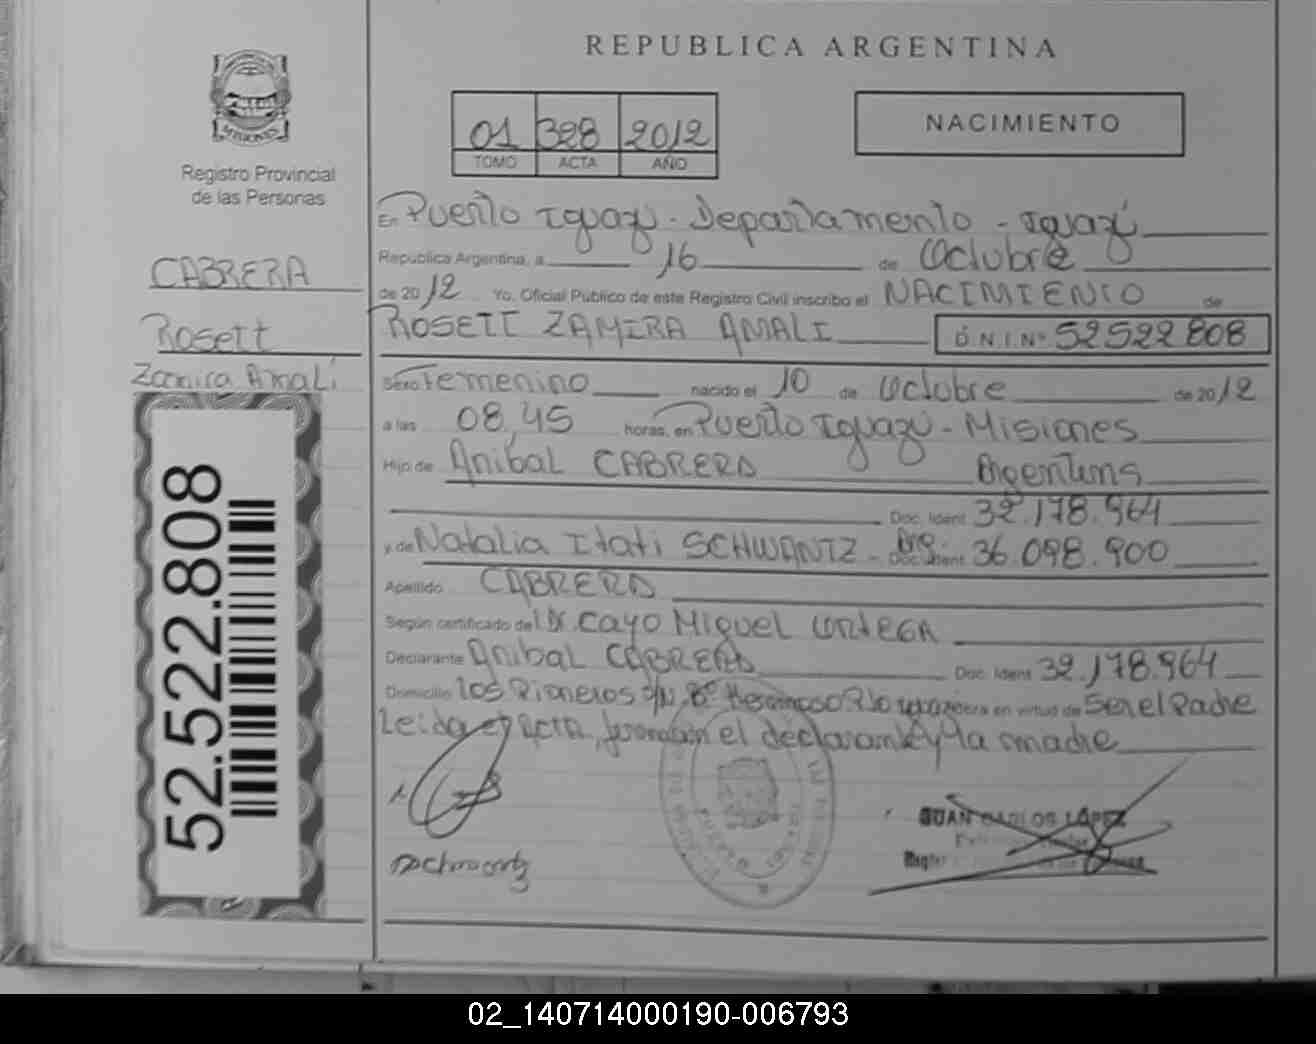 REPUBLICA ARGENTINA
MISIONES
Registro Provincial
de las Personas
01 328 2012
TOMO ACTA AÑO
NACIMIENTO
CABRERA
Rosett
Zamira Amalí
52.522.808
En Puerto Iguazú - Departamento - Iguazú
Republica Argentina, a 16 de Octubre
de 2012 Yo, Oficial Público de este Registro Civil inscribo el NACIMIENTO de
ROSETT ZAMIRA AMALI D.N.I.Nº 52522808
Sexo Femenino nacido el 10 de Octubre de 2012
a las 08,45 horas, en Puerto Iguazú - Misiones
Hijo de Anibal CABRERA Argentino
Doc. Ident 32.178.964
y de Natalia Itati SCHWANTZ - Arg. Doc. Ident 36.098.900
Apellido CABRERA
Según certificado del Dr. Cayo Miguel ORTEGA
Declarante Anibal CABRERA Doc. Ident 32.178.964
Domicilio Los Pioneros s/n Bº Hermoso Pto Iguazú en virtud de Ser el Padre
Leida el ACTA, el declarante y la madre
JUAN CARLOS LÓPEZ
02_140714000190-006793